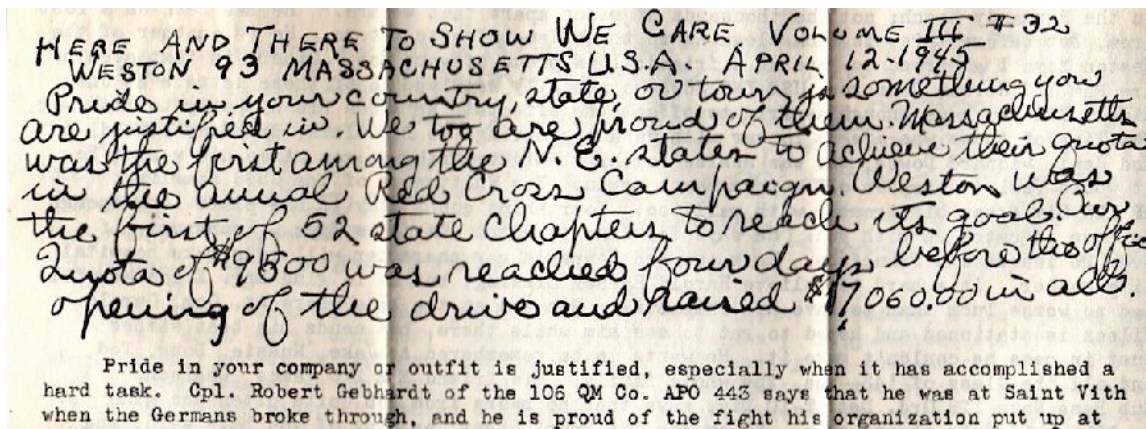 HERE AND THERE TO SHOW WE CARE VOLUME III # 32
WESTON 93 MASSACHUSETTS U.S.A. APRIL 12-1945
Pride in your country, state, or town is something you
are justified in. We too are proud of them. Massachusetts
was the first among the N.E. states to achieve their quota
in the annual Red Cross Campaign. Weston was
the first of 52 state chapters to reach its goal. Our
Quota of $9500 was reached four days before the official
opening of the drive and raised $17,060.00 in all.
Pride in your company or outfit is justified, especially when it has accomplished a
hard task. Cpl. Robert Gebhardt of the 106 QM Co. APO 443 says that he was at Saint Vith
when the Germans broke through, and he is proud of the fight his organization put up at